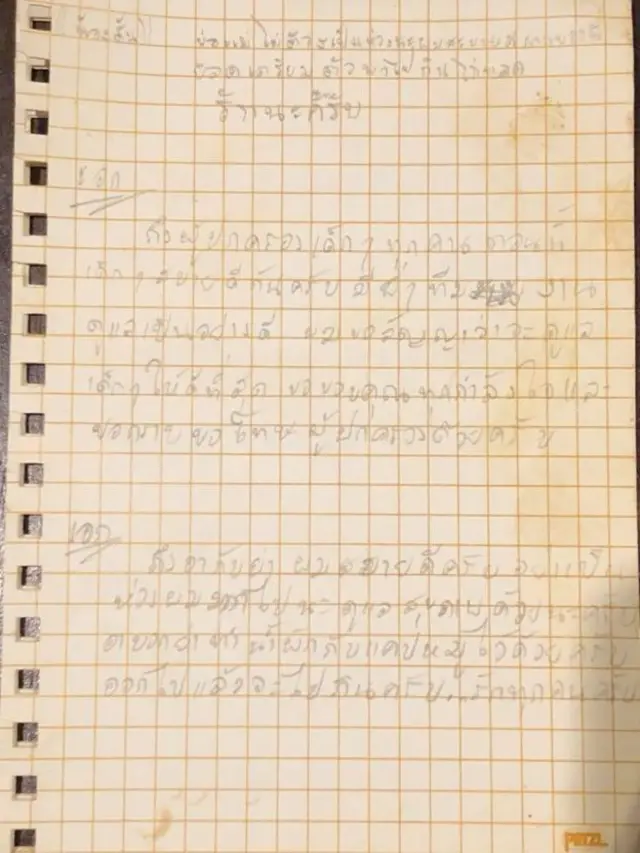 พ่อแม่ไม่ต้องเป็นห่วงนะ
เตรียมตัวพาไปกินไก่ทอด
รักนะครับ
เอก
ถึงผู้ปกครองเด็กๆ ทุกคน ตอนนี้
เด็กๆ สบายดีกันครับ มีพี่ๆ ทีมงาน
ดูแลเป็นอย่างดี ผมขอสัญญาว่าจะดูแล
เด็กๆ ให้ดีที่สุด ขอขอบคุณทุกกำลังใจและ
ขอกราบขอโทษผู้ปกครองด้วยครับ
เอก
ถึงอากับย่า ผมสบายดีครับ อย่าเป็น
ห่วงผมนะ ดูแลสุขภาพด้วยนะครับ
ย่าทำน้ำผักกับแคปหมูไว้ด้วยครับ
ออกไปแล้วจะไปกินครับ รักทุกคนครับ
PETZL